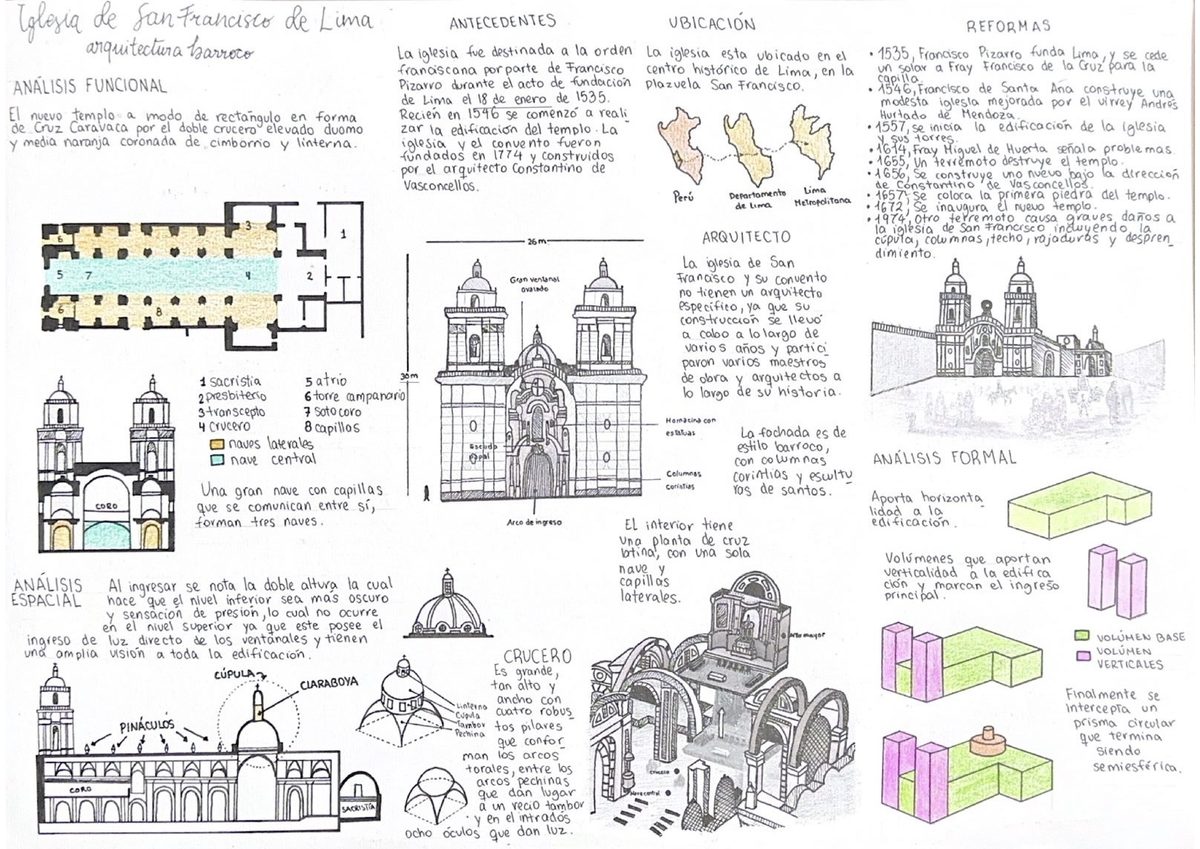 Iglesia de San Francisco de Lima
arquitectura barroco
ANÁLISIS FUNCIONAL
El nuevo templo a modo de rectángulo en forma
de Cruz Caravaca por el doble crucero elevado duomo
y media naranja coronada de cimbornio y linterna.
1
2
3
4
5
6
6
7
8
1 sacristia
2 presbiterio
3 transcepto
4 crucero
5 atrio
6 torre campanario
7 soto coro
8 capillas
naves laterales
nave central
CORO
Una gran nave con capillas
que se comunican entre sí,
forman tres naves.
ANÁLISIS
ESPACIAL
Al ingresar se nota la doble altura la cual
hace que el nivel inferior sea mas oscuro
y sensación de presión, lo cual no ocurre
en el nivel superior ya que este posee el
ingreso de luz directo de los ventanales y tienen
una amplia visión a toda la edificación.
CÚPULA
CLARABOYA
PINÁCULOS
CORO
SACRISTÍA
ANTECEDENTES
La iglesia fue destinada a la orden
franciscana por parte de Francisco
Pizarro durante el acto de fundación
de Lima el 18 de enero de 1535.
Recien en 1546 se comenzó a reali
zar la edificación del templo. La
iglesia y el convento fueron
fundados en 1774 y construidos
por el arquitecto Constantino de
Vasconcellos.
26 m
30m
Gran ventanal
ovalado
Escudo
Papal
Hornacina con
estatuas
Columnas
coristias
Arco de ingreso
Linterna
Cúpula
Tambor
Pechina
CRUCERO
Es grande,
tan alto y
ancho con
cuatro robus
tos pilares
que confor
man los arcos
torales, entre los
arcos pechinas
que dan lugar
a un recio tambor
y en el intrados
ocho óculos que dan luz.
UBICACIÓN
La iglesia esta ubicado en el
centro histórico de Lima, en la
plazuela San Francisco.
Perú
Departamento
de Lima
Lima
Metropolitana
ARQUITECTO
La iglesia de San
Francisco y su convento
no tienen un arquitecto
especifico, ya que su
construcción se llevó
a cabo a lo largo de
varios años y partici
paron varios maestros
de obra y arquitectos a
lo largo de su historia.
La fachada es de
estilo barroco,
con columnas
corintias y escultu
ras de santos.
El interior tiene
una planta de cruz
latina, con una sola
nave y
capillas
laterales.
Altar mayor
Crucero
Nave central
REFORMAS
• 1535, Francisco Pizarro funda Lima, y se cede
un solar a Fray Francisco de la Cruz para la
capilla.
• 1546, Francisco de Santa Ana construye una
modesta iglesia mejorada por el virrey Andrés
Hurtado de Mendoza.
• 1557, se inicia la edificación de la iglesia
y sus torres.
• 1614, Fray Miguel de Huerta señala problemas.
• 1655, Un terremoto destruye el templo.
• 1656, Se construye uno nuevo bajo la dirección
de Constantino de Vasconcellos.
• 1657, Se coloca la primera piedra del templo.
• 1672, Se inaugura el nuevo templo.
• 1974, Otro terremoto causa graves daños a
la iglesia de San Francisco incluyendo la
cúpula, columnas, techo, rajaduras y despren
dimiento.
ANÁLISIS FORMAL
Aporta horizonta
lidad a la
edificación.
Volúmenes que aportan
verticalidad a la edifica
ción y marcan el ingreso
principal.
VOLÚMEN BASE
VOLÚMEN
VERTICALES
Finalmente se
intercepta un
prisma circular
que termina
siendo
semiesférica.